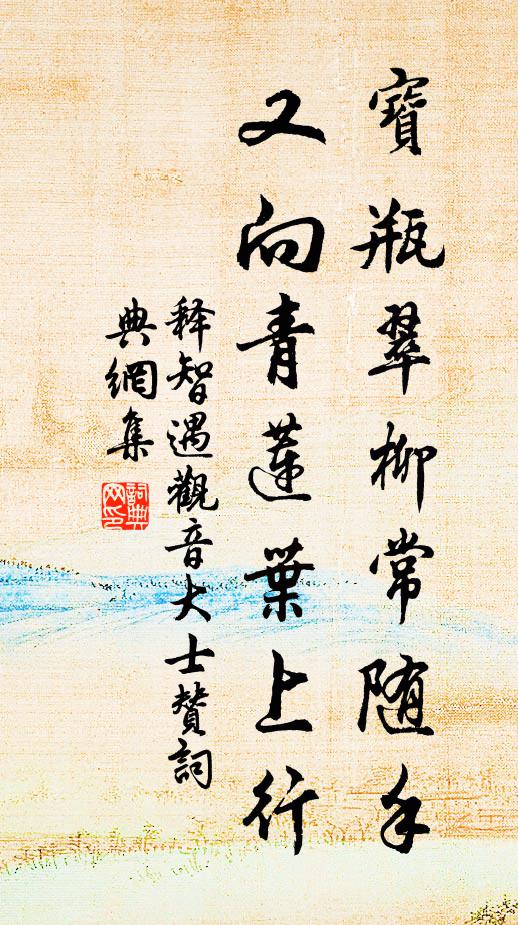 寶瓶翠柳常随手
又向青蓮葉上行
释智遇觀音大士赞詞
典網集
詞典
网印